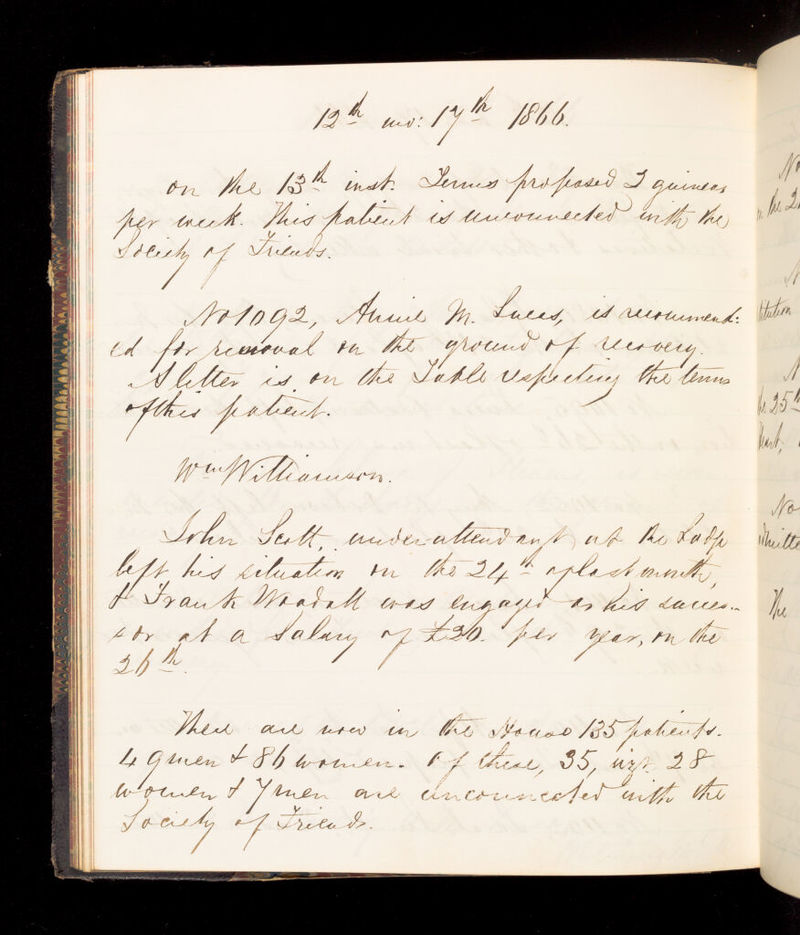 12th mo: 17th 1866.
on the 13th inst. Terms proposed 2 guineas
per week. This patient is unconnected with the
Society of Friends.
No 1092, Annie M. Lucas, is recommend:
ed for removal on the ground of recovery.
A letter is on the Table respecting the terms
of this patient.
Wm Williamson.
John Scott, under attendant at the Lodge
left his situation on the 24th of last month,
& Frank Woodall was engaged as his succes-
sor at a Salary of £20. per year, on the
26th.
There are now in the House 135 patients.
49 men & 86 women. Of these, 35, viz. 28
women & 7 men are unconnected with the
Society of Friends.
No
the 2
stitution
the 25th
No
The